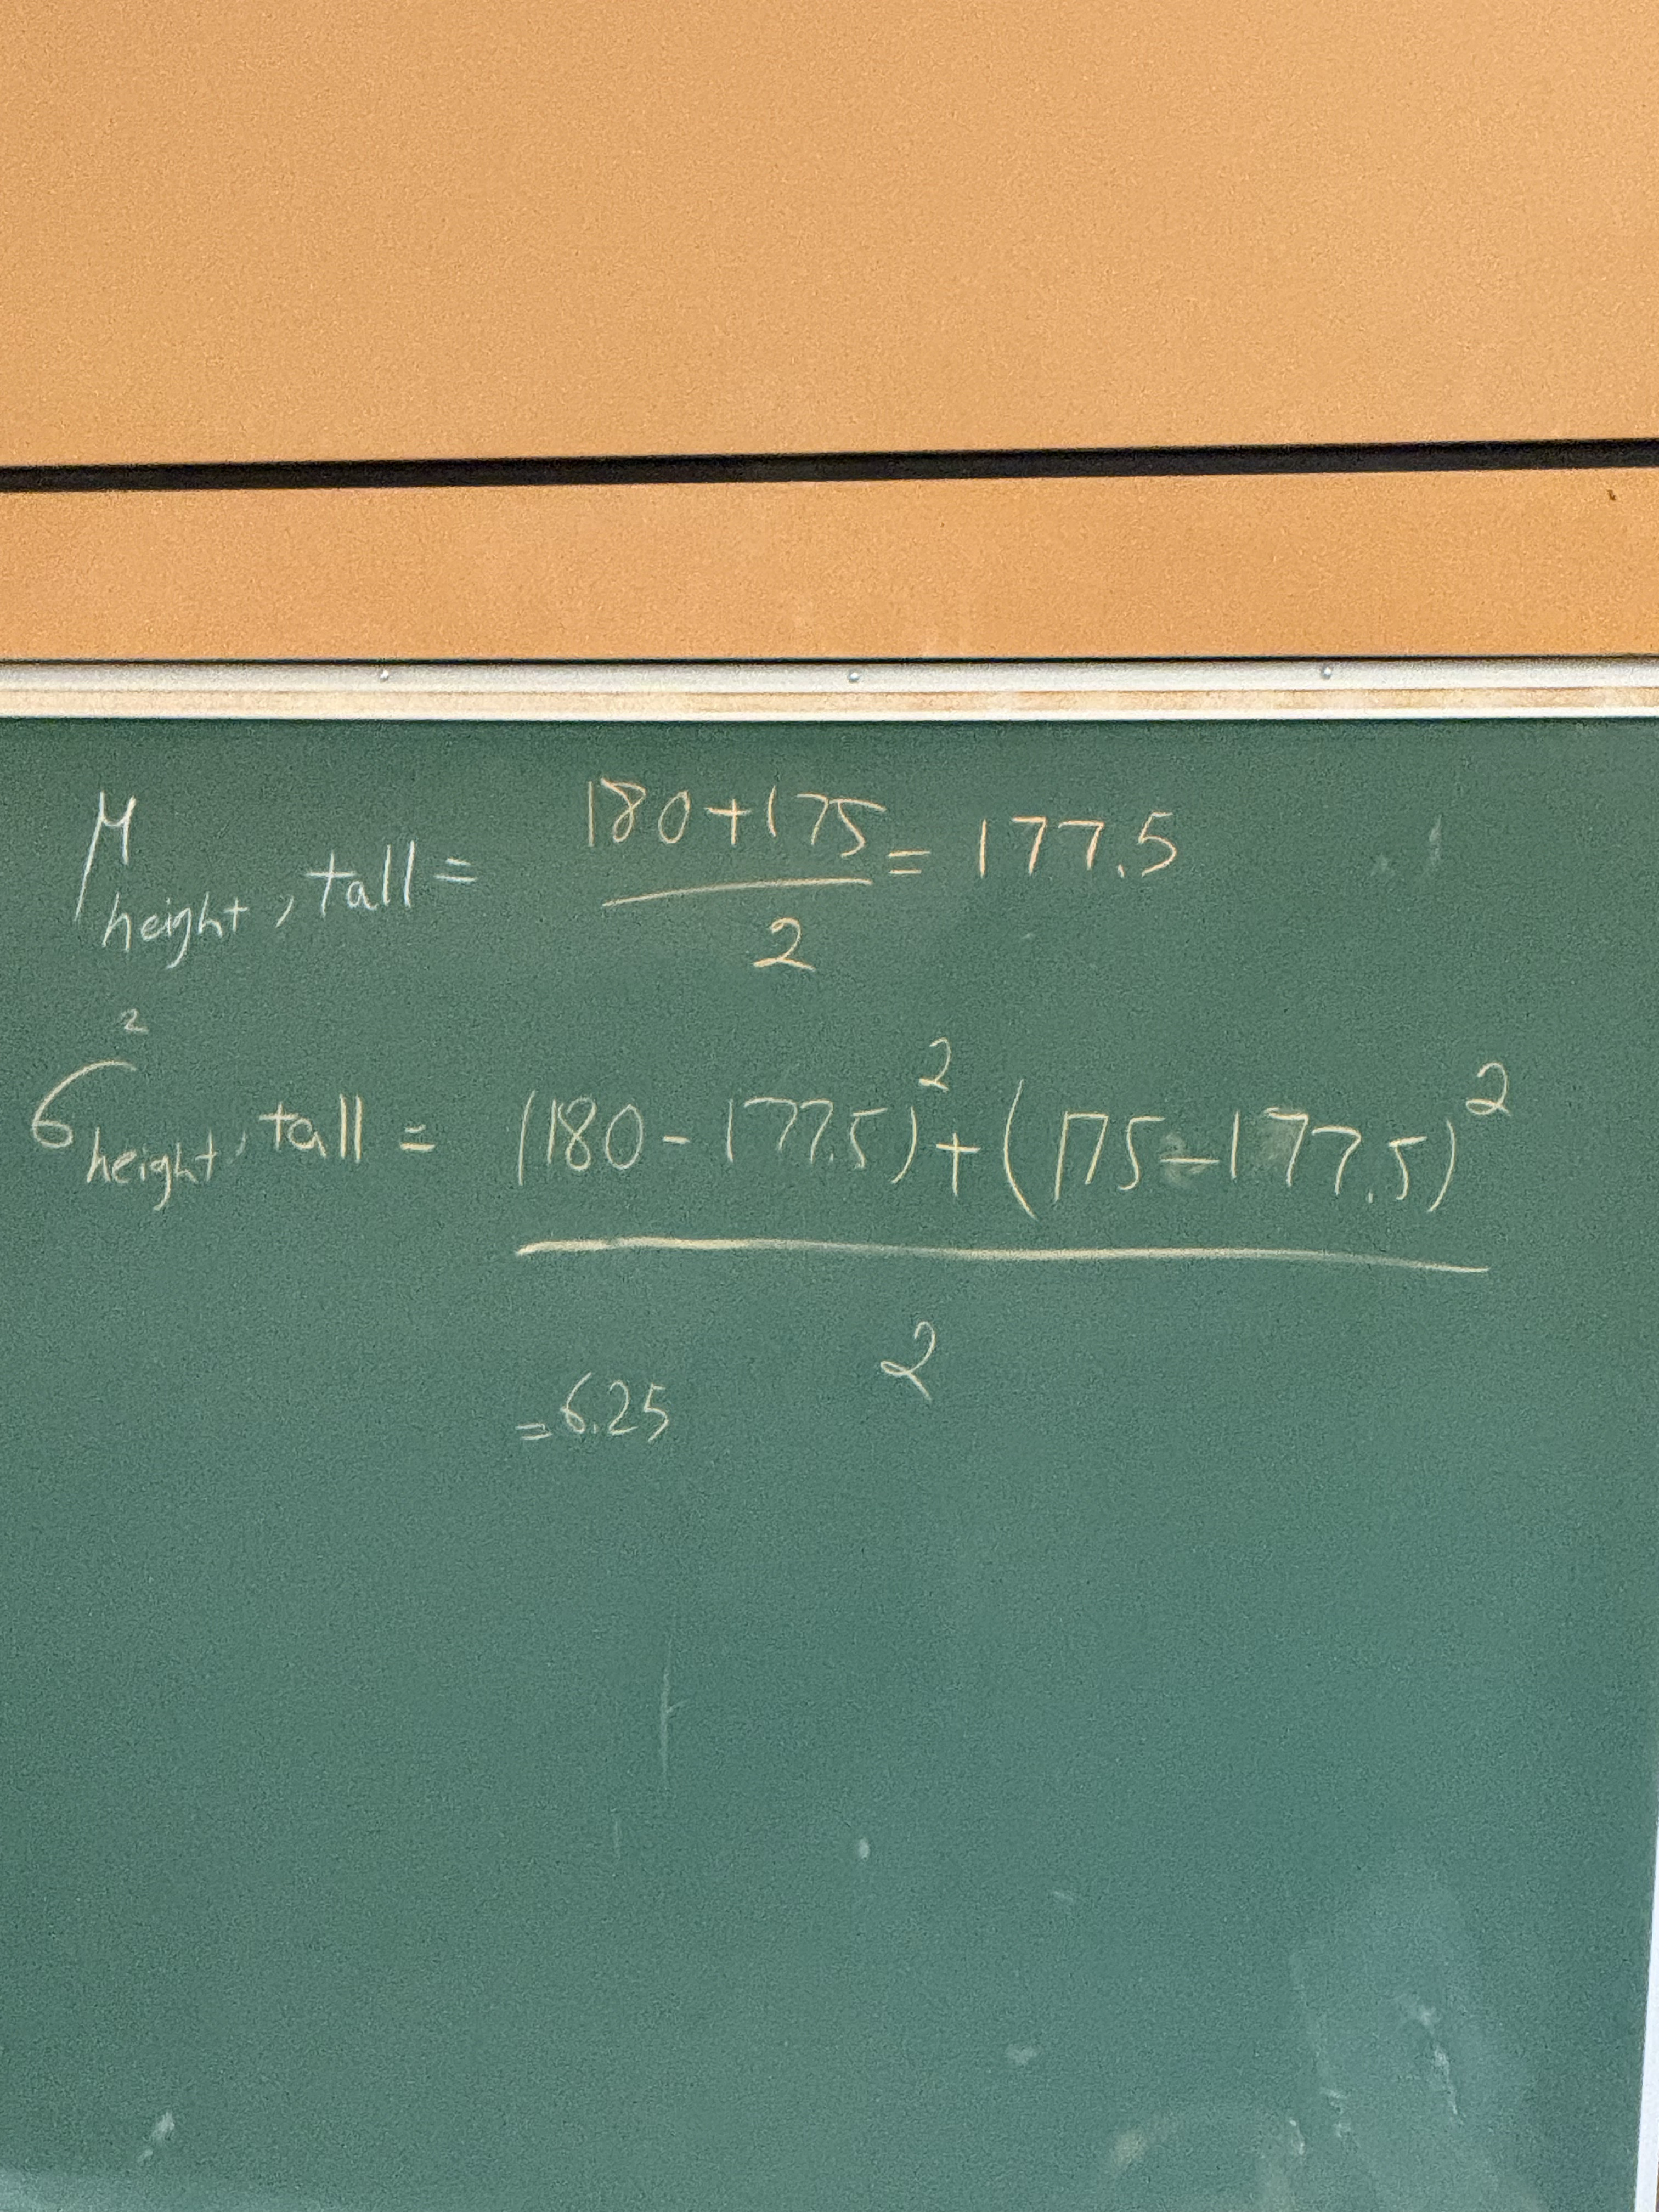 μ height, tall = (180+175)/2 = 177.5
σ² height, tall = ((180 - 177.5)² + (175 - 177.5)²)/2
= 6.25